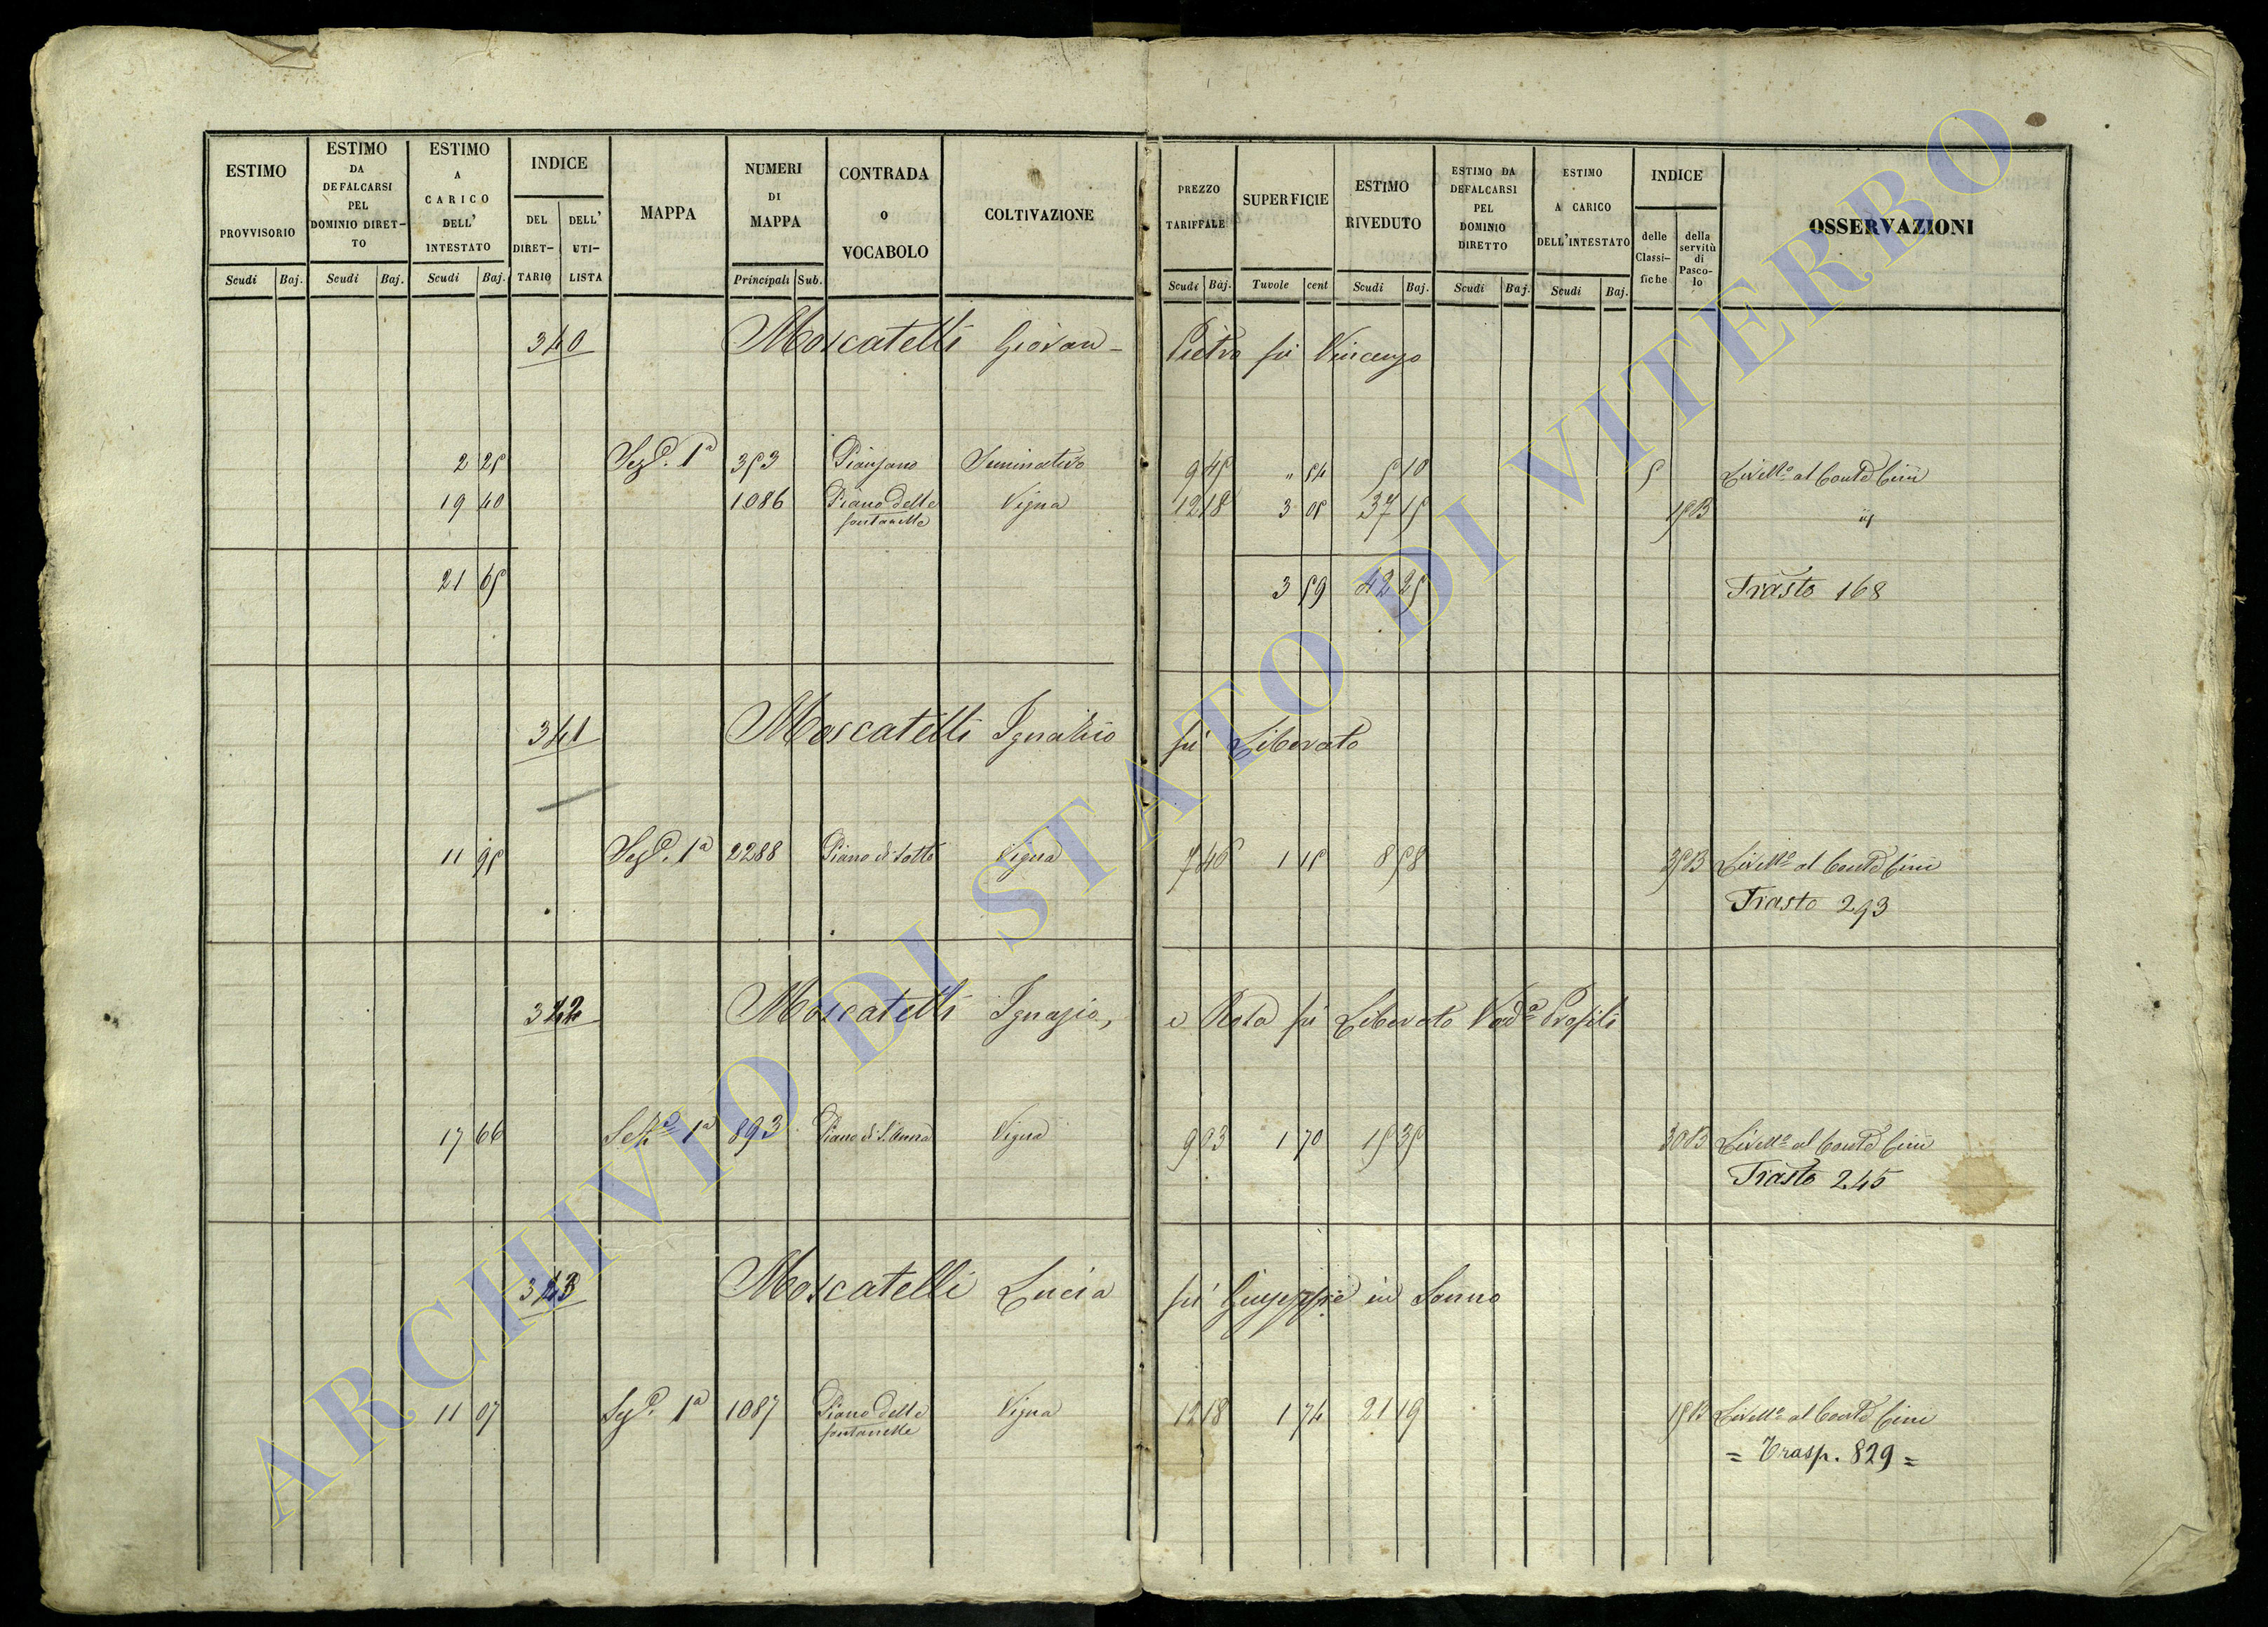 ESTIMO PROVVISORIO Scudi Baj.
ESTIMO DA DEFALCARSI PEL DOMINIO DIRET-TO Scudi Baj.
ESTIMO A CARICO DELL' INTESTATO Scudi Baj.
INDICE DEL DIRET-TARIO DELL' UTI-LISTA
MAPPA
NUMERI DI MAPPA Principali Sub.
CONTRADA O VOCABOLO
COLTIVAZIONE
PREZZO TARIFFALE Scudi Baj.
SUPERFICIE Tavole cent
ESTIMO RIVEDUTO Scudi Baj.
ESTIMO DA DEFALCARSI PEL DOMINIO DIRETTO Scudi Baj.
ESTIMO A CARICO DELL'INTESTATO Scudi Baj.
INDICE delle Classi-fiche della servitù di Pasco-lo
OSSERVAZIONI
340 Moscatelli Giovan- Pietro fù Vincenzo
2 25 Seze. 1a 353 Pianzano Seminativo 9 45 " 54 5 10 5 Livello al Conte Cini
19 40 1086 Piano delle fontanelle Vigna 12 18 3 05 37 15 15B
21 65 3 59 42 25 Trasto 168
341 Moscatelli Ignazio fù Liberato
11 95 Seze. 1a 2288 Piano di Sotto Vigna 7 46 1 15 8 58 Livello al Conte Cini
Trasto 293
342 Moscatelli Ignazio, e Rosa fù Liberato Profili
17 66 1a 893 Piano di S. Anna Vigna 9 03 1 70 15 35 30B Livello al Conte Cini
Trasto 245
343 Moscatelli Lucia fù Giuseppe in Sonno
11 07 Seze. 1a 1087 Piano delle fontanelle Vigna 12 18 1 74 21 19 15B Livello al Conte Cini
= Trasp. 829 =
ARCHIVIO DI STATO DI VITERBO